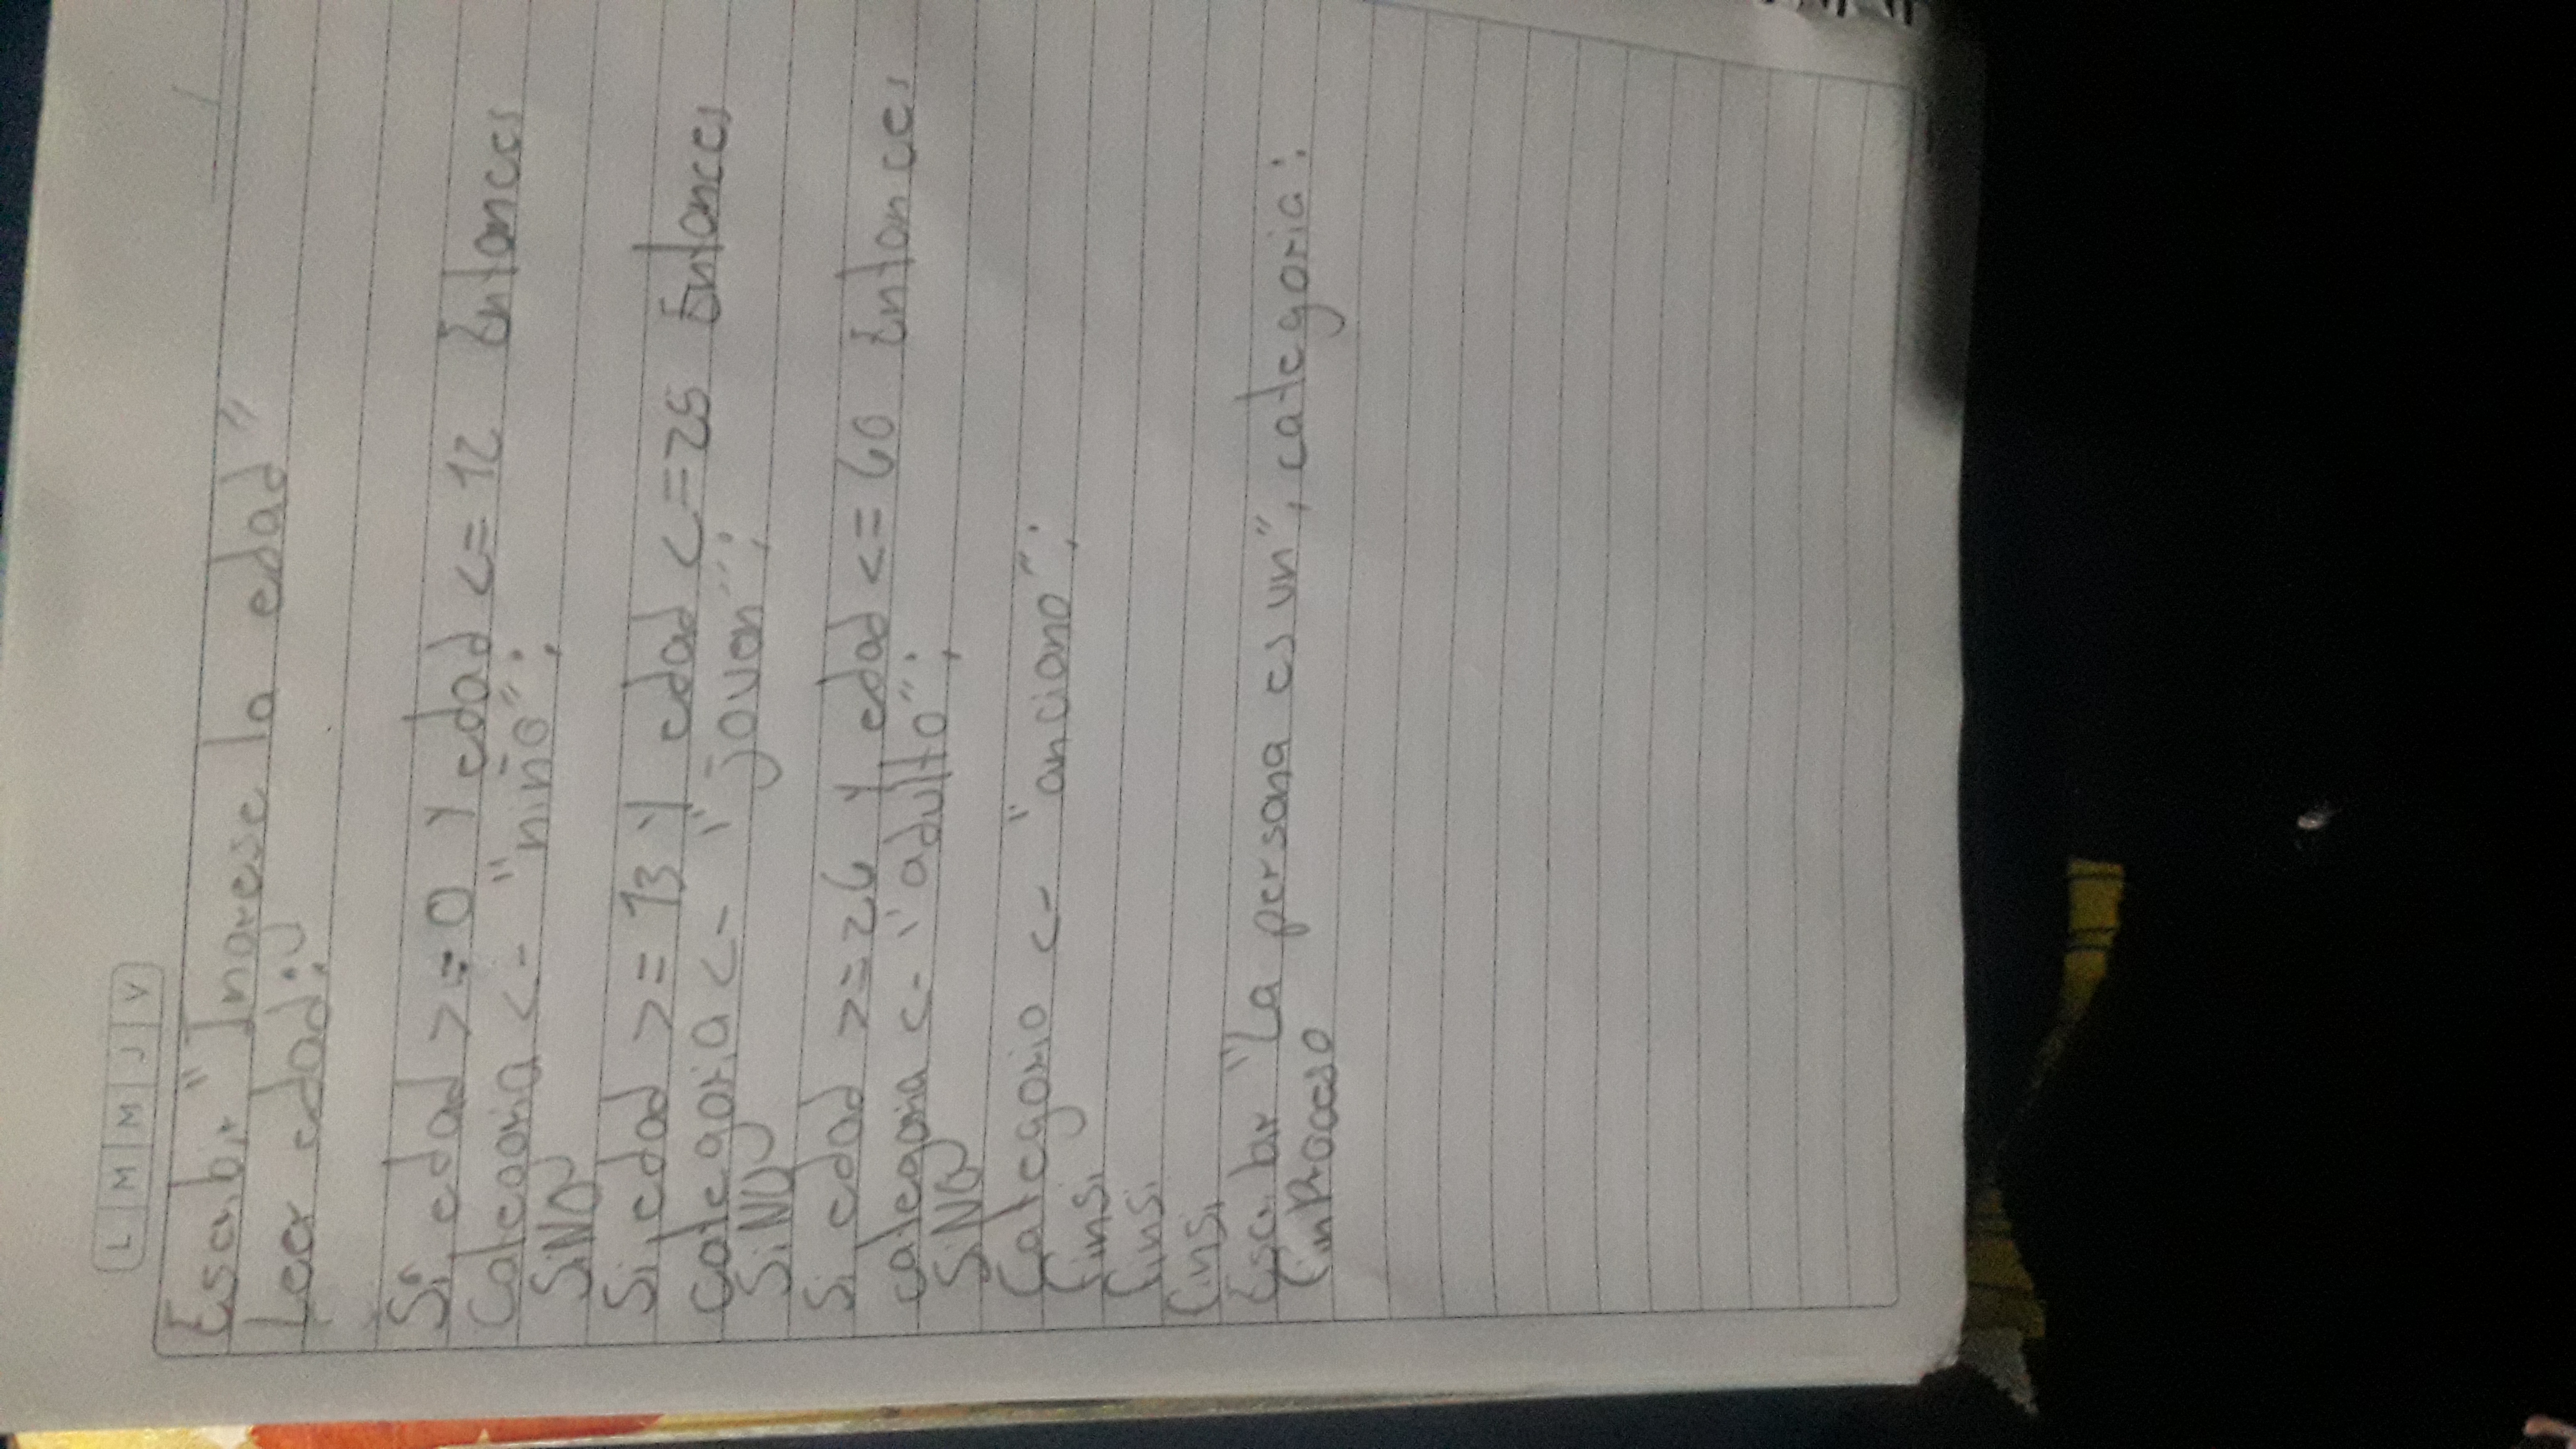 L M M J V
Escribir "Ingrese la edad"
Leer edad;
Si edad >= 0 Y edad <= 12 Entonces
Categoria <- "niño";
SiNO
Si edad >= 13 Y edad <= 25 Entonces
categoria <- "joven";
SiNO
Si edad >= 26 Y edad <= 60 Entonces
categoria <- "adulto";
SiNO
Categorio <- "anciano";
Finsi
Finsi
Finsi
Escribir "La persona es un", categoria:
FinProceso